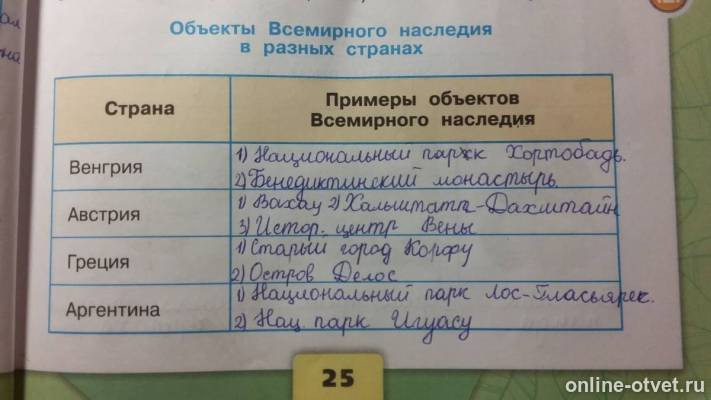 Объекты Всемирного наследия
в разных странах
Страна
Примеры объектов
Всемирного наследия
Венгрия
1) Национальный паржк Хортобадь.
2) Бенедиктинский монастырь.
Австрия
1) Вахау 2) Хальштатт-Дахштайн
3) Истор. центр Вены
Греция
1) Старый город Корфу
2) Остров Делос
Аргентина
1) Национальный парк Лос-Гласьярек.
2) Нац. парк Игуасу
25
online-otvet.ru